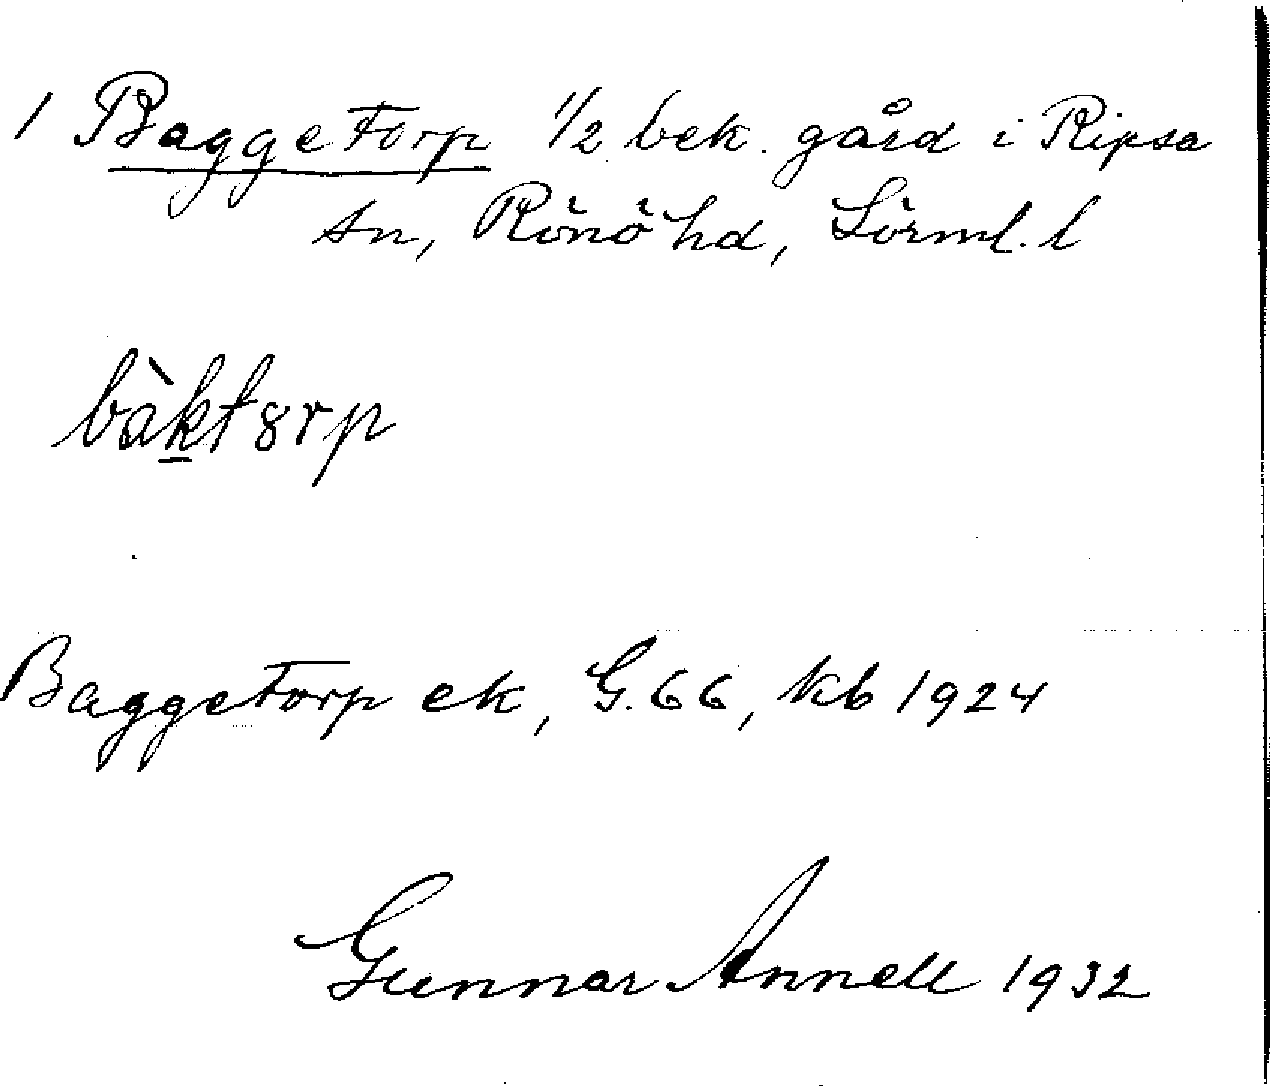 1 Baggetorp 1/2 bek. gård i Ripsa
sn, Rönö hd, Sörml. l
bàktȣrp
Baggetorp ek, G. 66, kb 1924
Gunnar Annell 1932